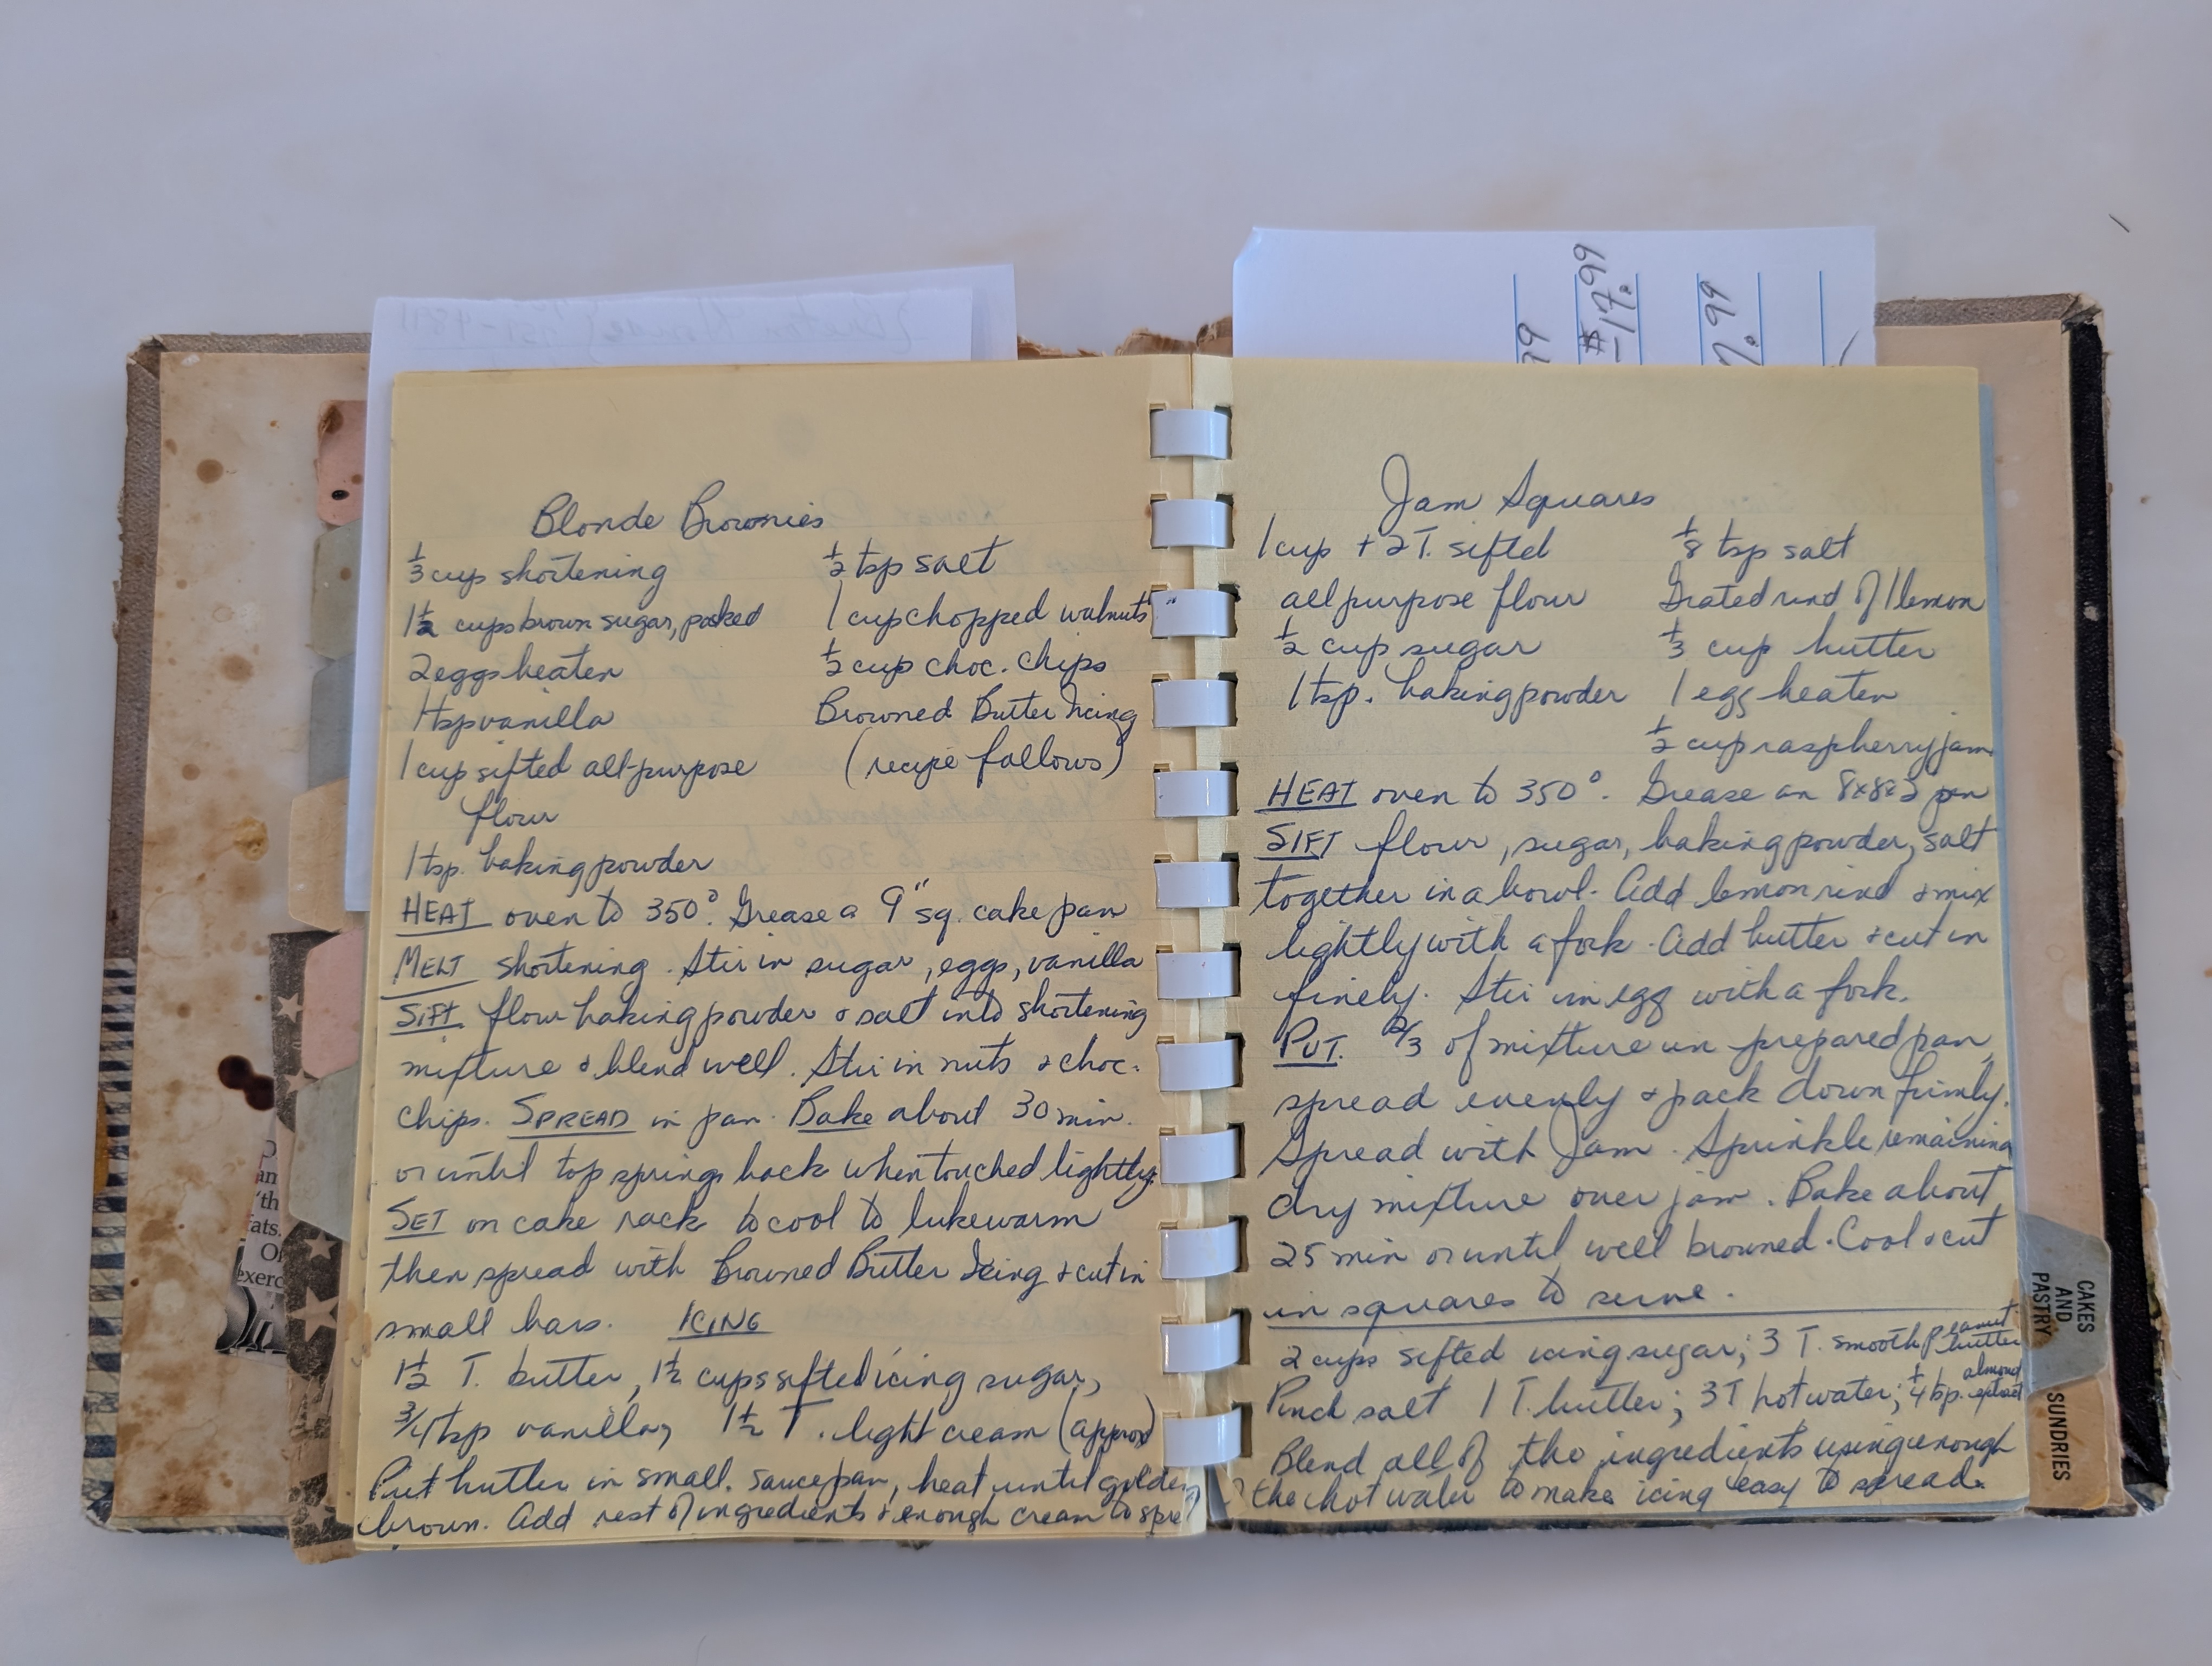 Blonde Brownies
1/3 cup shortening
1 1/2 cups brown sugar, packed
2 eggs beaten
1 tsp vanilla
1 cup sifted all-purpose
flour
1 tsp. baking powder
1/2 tsp salt
1 cup chopped walnuts
1/2 cup choc. chips
Browned Butter Icing
(recipe follows)
HEAT oven to 350°. Grease a 9" sq. cake pan
MELT shortening. Stir in sugar, eggs, vanilla
SIFT flour baking powder & salt into shortening
mixture & blend well. Stir in nuts & choc.
chips. SPREAD in pan. Bake about 30 min.
or until top springs back when touched lightly.
SET on cake rack to cool to lukewarm
then spread with Browned Butter Icing & cut in
small bars. ICING
1 1/2 T. butter, 1 1/2 cups sifted icing sugar,
3/4 tsp vanilla, 1 1/2 T. light cream (approx)
Put butter in small. saucepan, heat until golden
brown. Add rest of ingredients & enough cream to
Jam Squares
1 cup + 2 T. sifted
all purpose flour
1/2 cup sugar
1 tsp. baking powder
1/8 tsp salt
Grated rind of 1 lemon
1/3 cup butter
1 egg beaten
1/2 cup raspberry jam
HEAT oven to 350°. Grease an 8x8x2 pan
SIFT flour, sugar, baking powder, salt
together in a bowl. Add lemon rind & mix
lightly with a fork. Add butter & cut in
finely. Stir in egg with a fork.
PUT. 2/3 of mixture in prepared pan,
spread evenly & pack down firmly.
Spread with Jam. Sprinkle remaining
dry mixture over jam. Bake about
25 min or until well browned. Cool & cut
in squares to serve.
2 cups sifted icing sugar; 3 T. smooth peanut butter
Pinch salt 1 T. butter; 3 T hot water; 1/4 tsp. almond extract
Blend all of the ingredients using enough
of the hot water to make icing easy to spread.
CAKES
AND
PASTRY
SUNDRIES
$
-17.99
7.99
an
'th
ats.
exerc